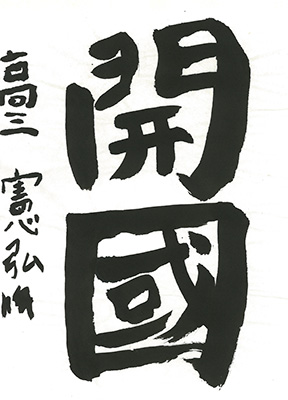 開國
高三 憲弘